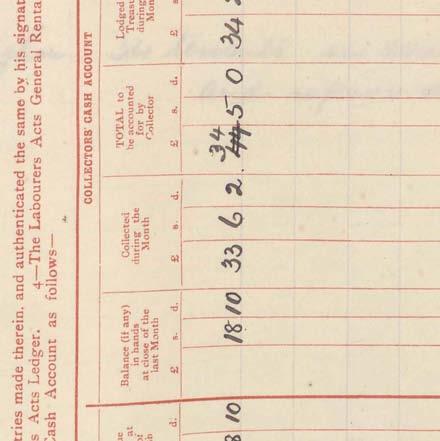 tries made therein, and authenticated the same by his signat
s Acts Ledger. 4—The Labourers Acts General Renta
Cash Account as follows—
COLLECTORS' CASH ACCOUNT
at
d.
8 10
Balance (if any)
in hands
at close of the
last Month
£ s. d.
18 10
Collected
during the
Month
£ s. d.
33 6 2
TOTAL to
be accounted
for by
Collector
£ s. d.
34
44 5 0
Lodged
Treasu
during
Mon
£ s.
34